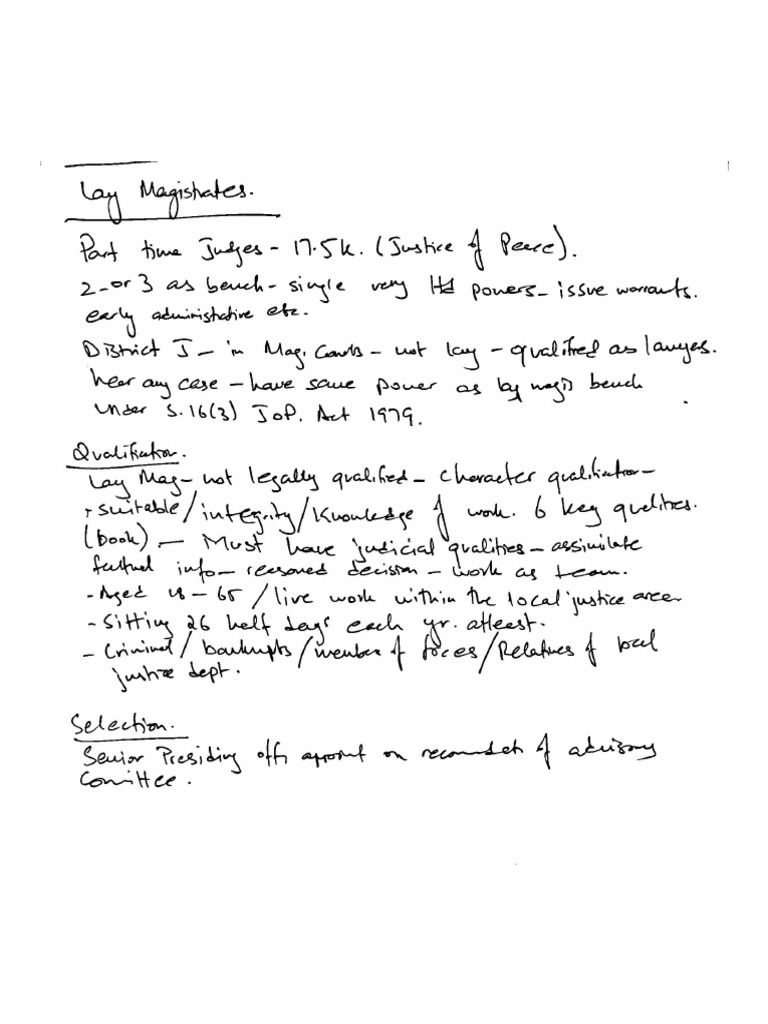 Lay Magistrates.
Part time Judges - 17.5k. (Justice of Peace).
2-or 3 as bench - single very ltd powers - issue warrants.
early administrative etc.
District J - in Mag. Courts - not lay - qualified as lawyes.
hear any case - have same power as by bench
under S.16(3) JoP. Act 1979.
Qualification.
Lay Mag - not legally qualified - Character qualification -
suitable/integrity/Knowledge of work. 6 key qualities.
(book). - Must have judicial qualities - assimilate
factual info - reasoned decision - work as team.
- Aged 18 - 65 / live work within the local justice area
- Sitting 26 half days each yr. atleast.
- Criminal/bankrupts/member of forces/Relatives of local
justice dept.
Selection.
Senior Presiding appoint on of advisory
Comittee.